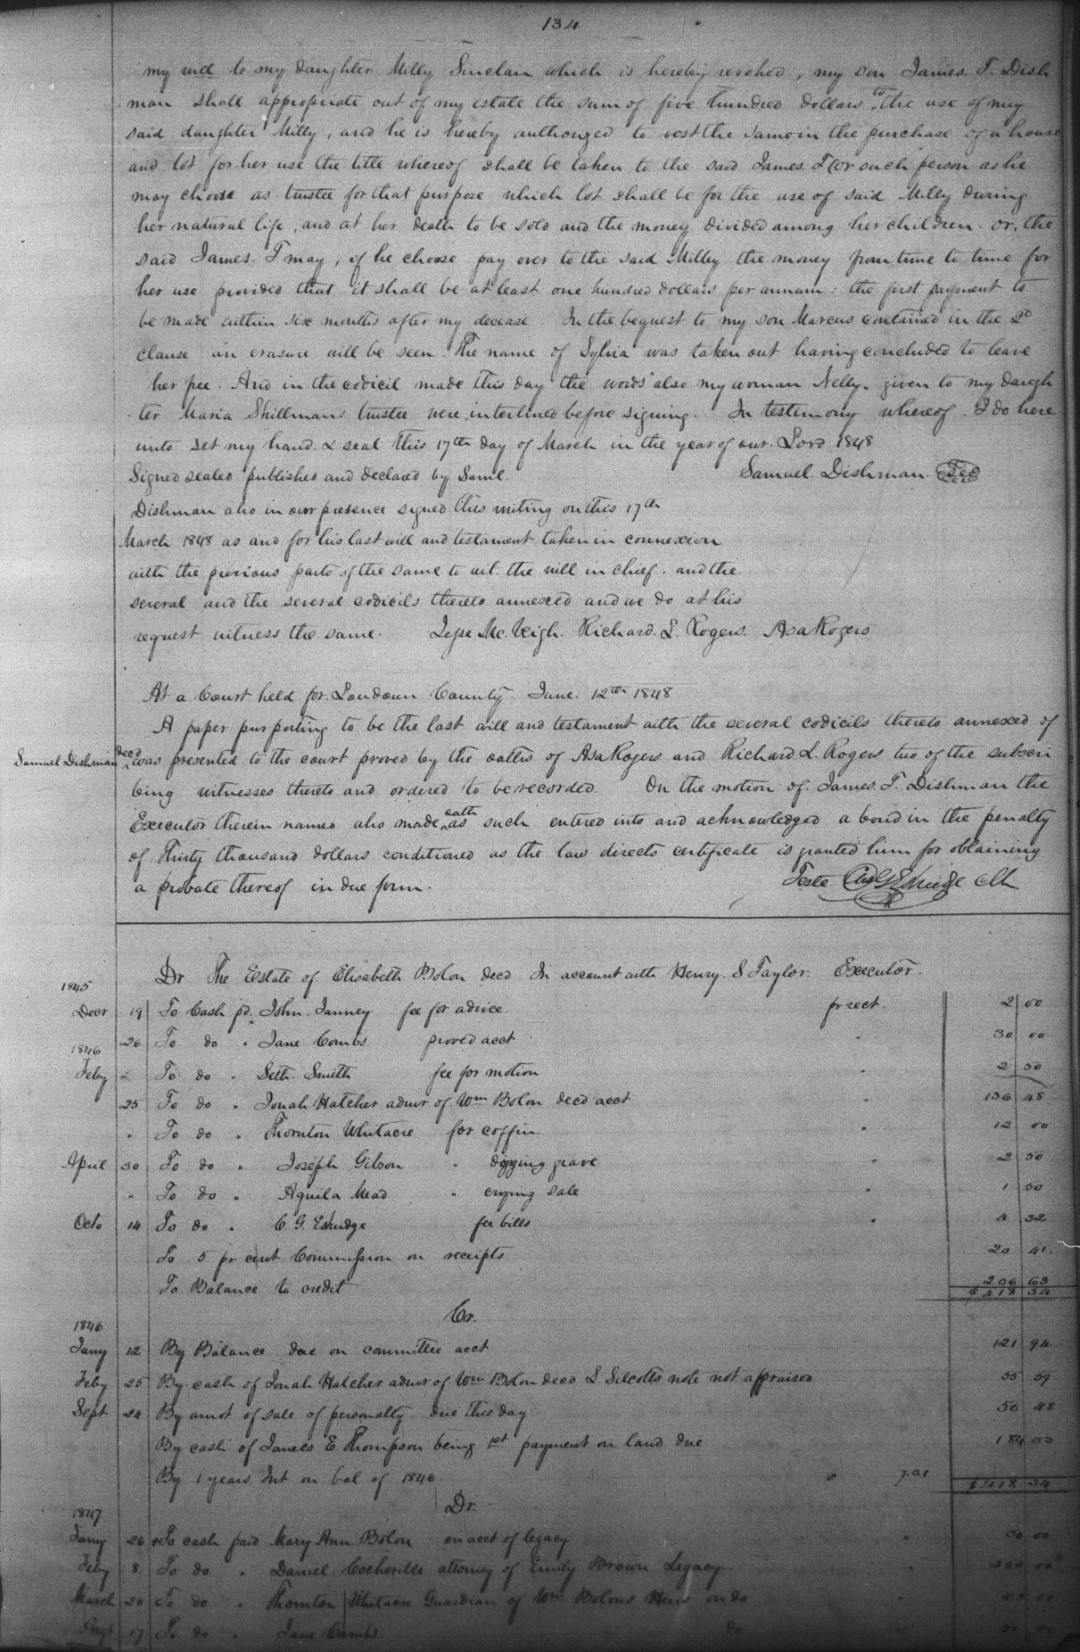 134
my will to my daughter Milly Sinclair which is hereby revoked, my son James. T. Dish
man shall appropriate out of my estate the sum of five hundred dollars, to the use of my
said daughter Milly, and he is hereby authorized to vest the same in the purchase of a house
and lot for her use the title whereof shall be taken to the said James. T or such person as he
may choose as trustee for that purpose which lot shall be for the use of said Milly during
her natural life, and at her death to be sold and the money divided among her children. or, the
said James. T may, if he choose pay over to the said Milley the money from time to time for
her use provided that it shall be at least one hundred dollars per annum: the first payment to
be made within six months after my decease In the bequest to my son Marcus contained in the 2d
clause an erasure will be seen. The name of Sylvia was taken out having concluded to leave
her free. And in the codicil made this day the words "also my woman Nelly" given to my daugh
ter Maria Skillman's trustee were interlined before signing. In testimony whereof. I do here
unto set my hand & seal this 17th day of March in the year of our Lord 1848
Signed sealed published and declared by Saml Samuel. Dishman. Seal
Dishman also in our presence signed this writing on this 17th
March 1848 as and for his last will and testament taken in connexion
with the previous parts of the same to wit. the will in chief. and the
several and the several codicils thereto annexed and we do at his
request witness the same. Jesse Mc.Veigh. Richard. L. Rogers. Asa Rogers
At a Court held for Loudoun County June. 12th 1848
A paper purporting to be the last will and testament with the several codicils thereto annexed of
Samuel Dishman decd was presented to the court proved by the oaths of Asa Rogers and Richard L. Rogers two of the subscri
bing witnesses thereto and ordered to be recorded. On the motion of James. T. Dishman the
Executor therein named who made oath as such entered into and acknowledged a bond in the penalty
of Thirty thousand dollars conditioned as the law directs certificate is granted him for obtaining
a probate thereof in due form. Teste
Dr The Estate of Elisabeth Bolon decd In account with Henry. S Taylor. Executor.
1845
Decr 19 To Cash pd. John. Janney fee for advice pr rect. 2 00
26 To do " Jane Combs proved acct " 30 00
1846
Feby " To do " Seth. Smith fee for motion " 2 50
25 To do " Jonah Hatcher admr of Wm Bolon decd acct " 136 48
" To do " Thornton Whitacre for coffin " 12 00
April 30 To do " Joseph Gibson " digging grave " 2 50
" To do " Aquila Mead " crying sale " 1 50
Octo 14 To do " C. G. Eskridge fee bills " 4 32
To 5 pr cent Commission on receipts 20 41
To Balance to credit 206 63
$418 34
Cr.
1846
Jany 12 By Balance due on committee acct 121 94
Feby 25 By cash of Jonah Hatcher admr of Wm Bolon decd L Silcotts note not appraised 55 59
Sept 24 By amot of sale of personalty due this day 50 48
By cash of James E Thompson being 1st payment on land due
By 1 years Int on bal of 1846. " 7.31
$418 34
Dr.
1847
Jany 26 To cash paid Mary Ann. Bolon on acct of legacy "
Feby 8 To do " Daniel Cockerille attorney of Emily Brown Legacy "
March 20 To do " Thornton Whitacre Guardian of Wm Bolons Heirs on do "
Augt 17 To do " Jane Combs do "